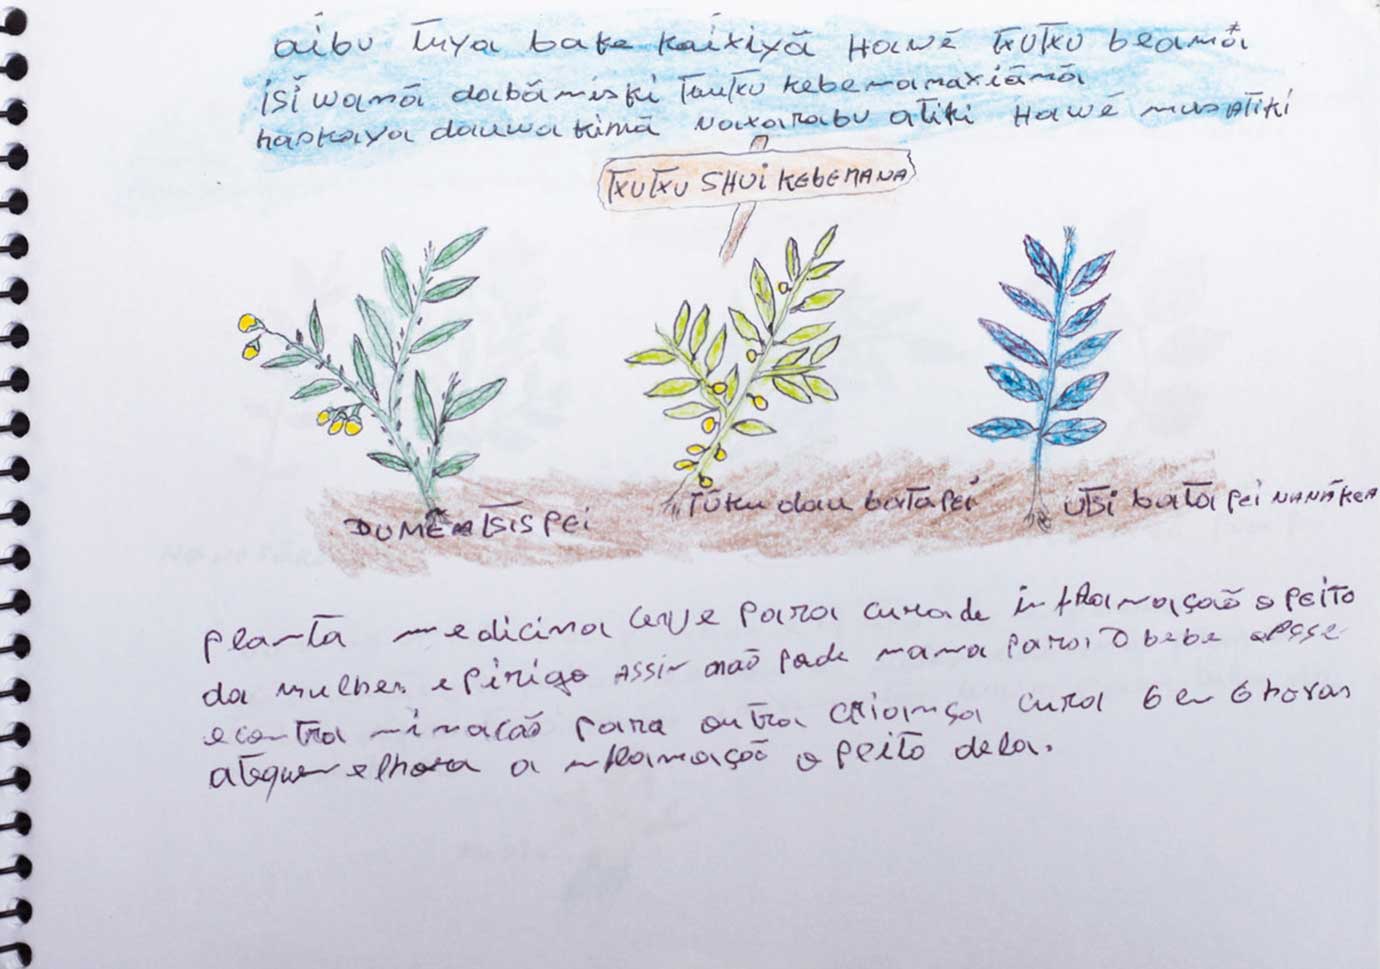 aibu tuya bake kaixiyã Hawẽ txutxu beamã
isĩ wamã dabãmiski txutxu kebemanaxiãmã
haskaya dauwakimã naxarabu atiki Hawẽ musatiki
TXUTXU SHUI KEBEMANA
DUMẼ TSIS PEI
TŨKU dau batapei
UTSI bata pei NANÃKEA
planta medicina serve para cura de inflamaçaõ o peito
da mulher. e pirigo Assir não pode mama para o bebe
e contra minacaõ para outra criança cura 6 em 6 horas
atequemelhora a inflamaçaõ o peito dela.